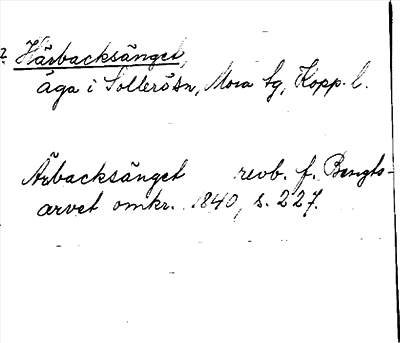 ? Härbacksänget,
äga i Sollerösn, Mora tg, Kopp. l.
Årbacksänget revb. f. Bengts-
arvet omkr. 1840, s. 227.